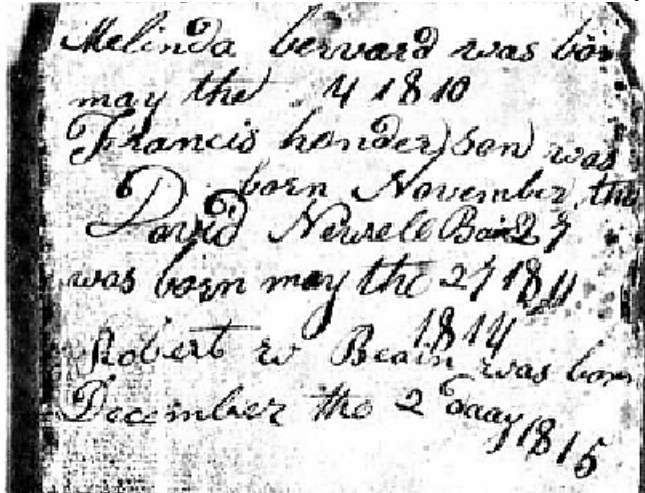 Melinda bervard was born
may the 4 1810
Francis honderson was
born November the
David Newele Bai 27
was born may the 27 1811
1814
Robert w Beain was born
December the 2 daay 1815